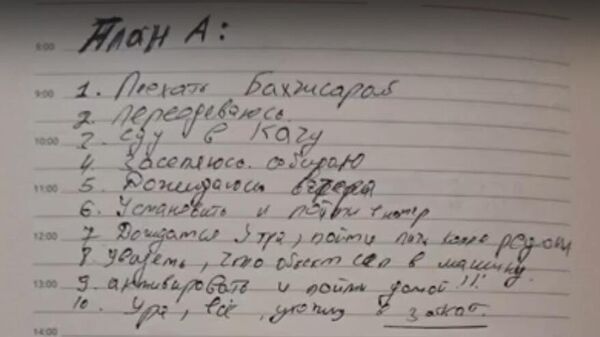 План А:
8:00
9:00 1. Поехать Бахчисарай
2. Переодеваюсь.
10:00 3. Еду в Качу
4. Заселяюсь. собираю
11:00 5. Дожидаюсь вечера
6. Установить и пойти в
12:00 7. Дождатся утра, пойти
8. Увидеть, что объект сел в машину.
13:00 9. активировать и пойти домой!!!
10. Ура, всё, ухожу в закат.
14:00